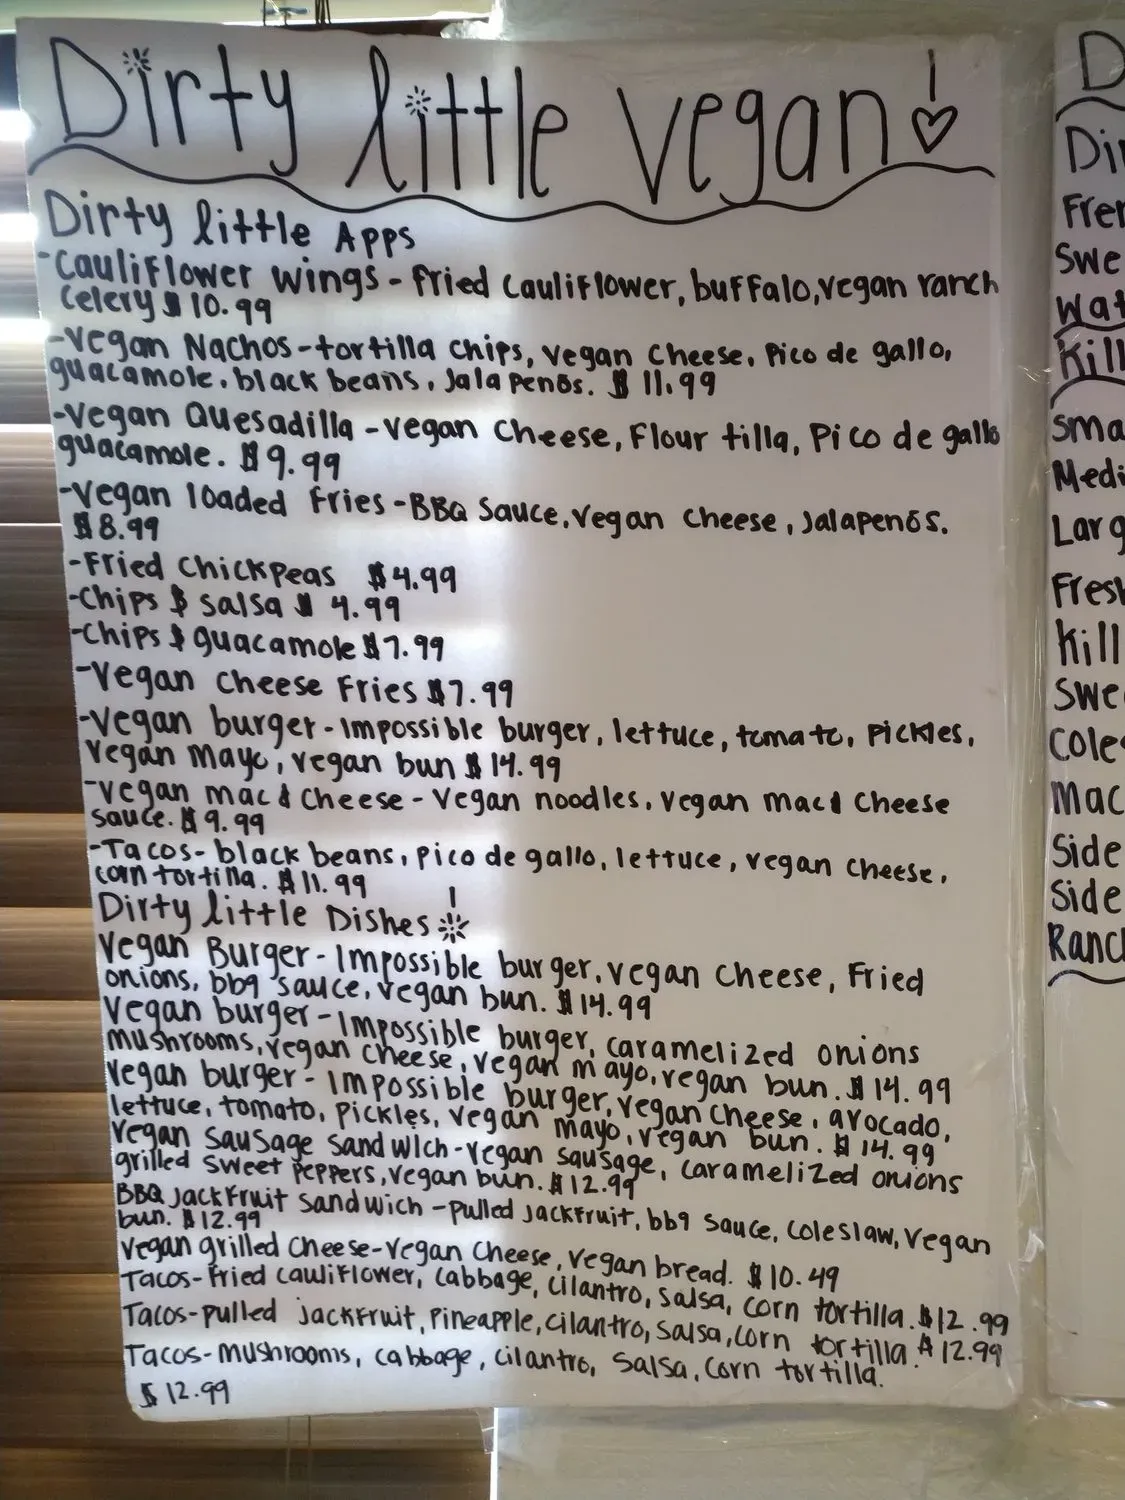 Dirty little vegan!
Dirty little Apps
-Cauliflower wings - fried cauliflower, buffalo, vegan ranch
celery $10.99
-Vegan Nachos - tortilla chips, vegan cheese, Pico de gallo,
guacamole, black beans, Jalapenos. $11.99
-Vegan Quesadilla - vegan cheese, Flour tilla, Pico de gallo
guacamole. $9.99
-Vegan loaded fries - BBQ Sauce, vegan cheese, Jalapenos.
$8.99
-Fried Chickpeas $4.99
-Chips $ salsa $4.99
-Chips $ guacamole $7.99
-Vegan cheese Fries $7.99
-Vegan burger - Impossible burger, lettuce, tomato, Pickles,
vegan mayo, vegan bun $14.99
-vegan mac & cheese - vegan noodles, vegan mac & cheese
sauce. $9.99
-Tacos - black beans, pico de gallo, lettuce, vegan cheese,
corn tortilla. $11.99
Dirty little Dishes!
Vegan Burger - Impossible burger, vegan cheese, Fried
onions, bbq sauce, vegan bun. $14.99
Vegan burger - Impossible burger, caramelized onions
mushrooms, vegan cheese, vegan mayo, vegan bun. $14.99
Vegan burger - Impossible burger, vegan cheese, avocado,
lettuce, tomato, Pickles, vegan mayo, vegan bun. $14.99
Vegan sausage sandwich - vegan sausage, caramelized onions
grilled sweet peppers, vegan bun. $12.99
BBQ Jackfruit sandwich - pulled Jackfruit, bbq sauce, coleslaw, vegan
bun. $12.99
Vegan grilled cheese - vegan cheese, vegan bread. $10.49
Tacos - fried cauliflower, cabbage, cilantro, salsa, corn tortilla. $12.99
Tacos - pulled jackfruit, Pineapple, cilantro, salsa, corn tortilla $12.99
Tacos - mushrooms, cabbage, cilantro, salsa, corn tortilla.
$12.99
D
Di
Fre
Swe
Wat
Kill
Sma
Medi
Larg
Fresh
Kill
Swe
Cole
Mac
Side
Side
Ranc